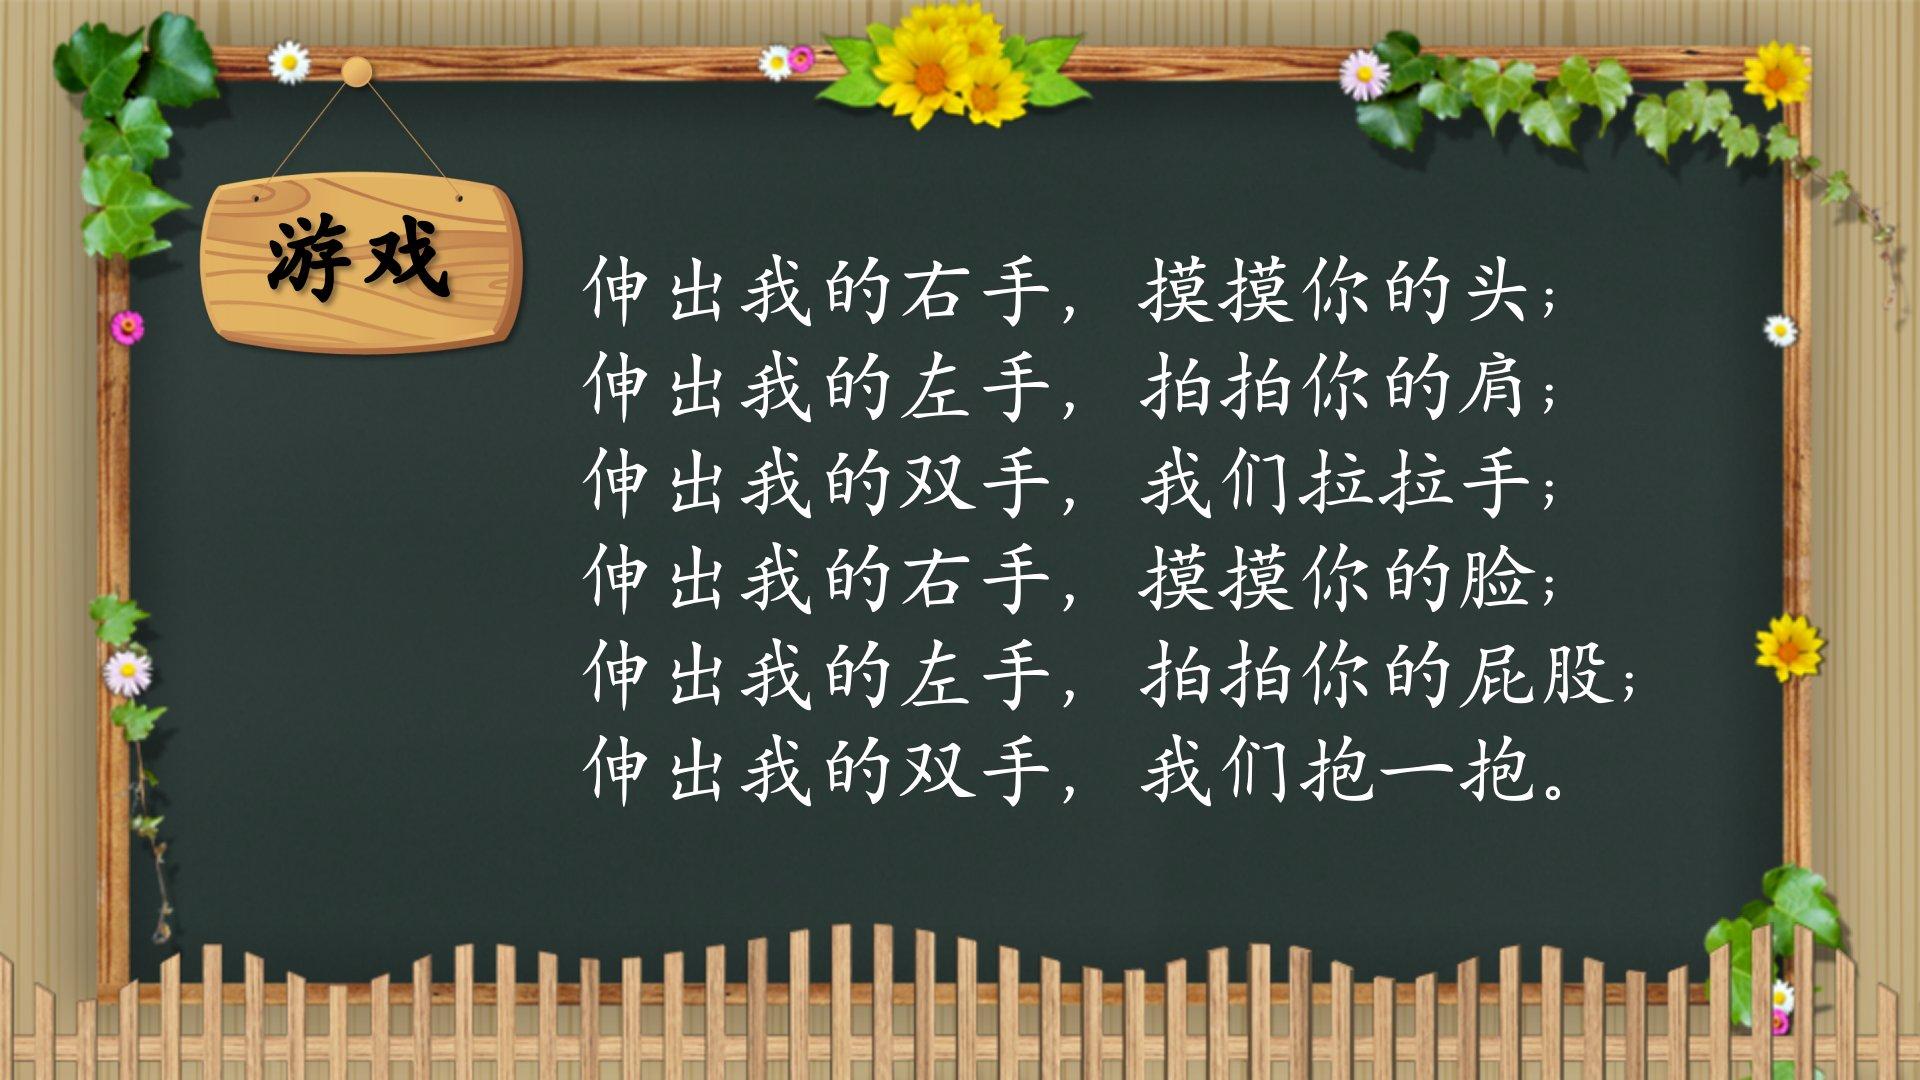 游戏
伸出我的右手，摸摸你的头；
伸出我的左手，拍拍你的肩；
伸出我的双手，我们拉拉手；
伸出我的右手，摸摸你的脸；
伸出我的左手，拍拍你的屁股；
伸出我的双手，我们抱一抱。